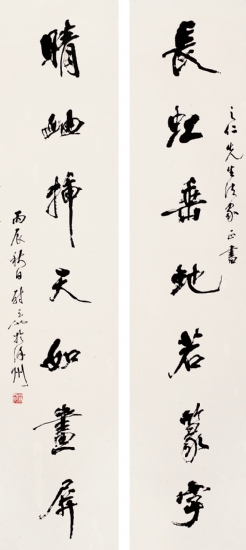 之仁先生法家正書
長虹垂地若篆字
晴岫插天如畫屏
丙辰秋日尉天池於徐州